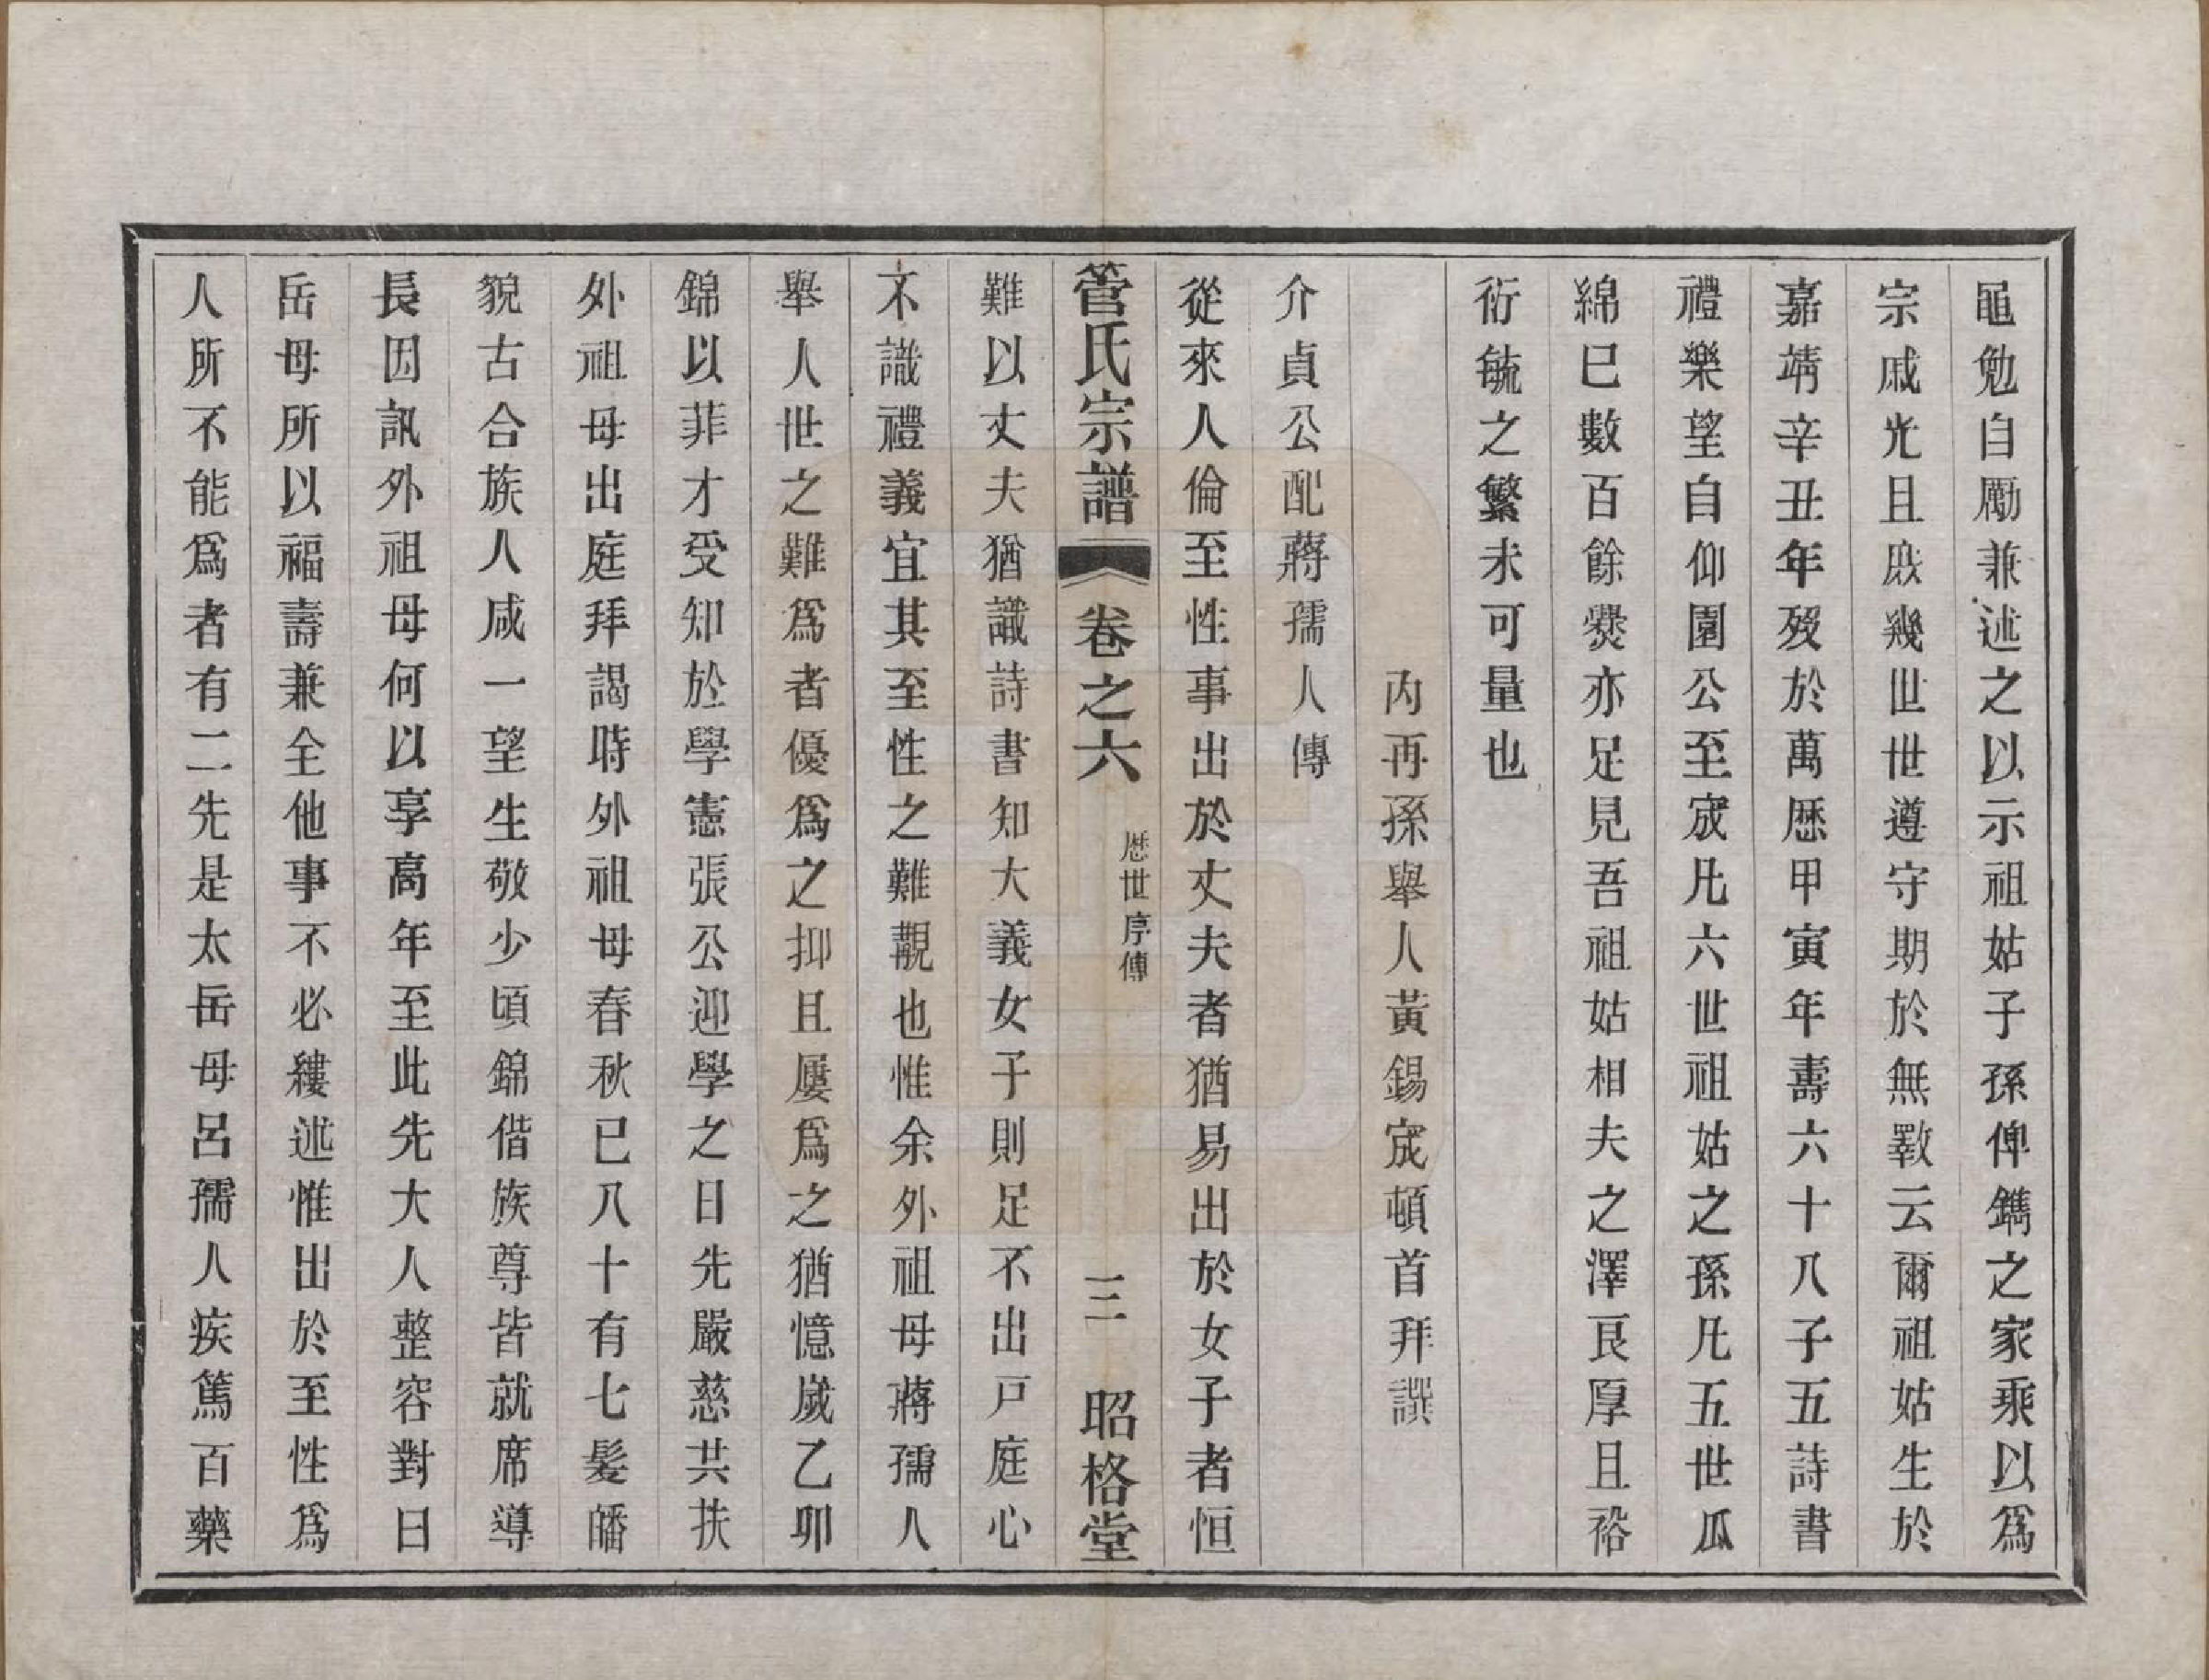 黽勉自勵兼述之以示祖姑子孫俾鐫之家乘以爲
宗戚光且庶幾世世遵守期於無斁云爾祖姑生於
嘉靖辛丑年歿於萬厯甲寅年壽六十八子五詩書
禮樂望自仰園公至宬凡六世祖姑之孫凡五世瓜
綿已數百餘爨亦足見吾祖姑相夫之澤良厚且裕
衍毓之繁未可量也
內再孫舉人黃錫宬頓首拜譔
介貞公配蔣孺人傳
從來人倫至性事出於丈夫者猶易出於女子者恒
管氏宗譜 卷之六 厯世序傳 三 昭格堂
難以丈夫猶識詩書知大義女子則足不出戸庭心
不識禮義宜其至性之難覯也惟余外祖母蔣孺人
舉人世之難爲者優爲之抑且屢爲之猶憶歲乙卯
錦以菲才受知於學憲張公迎學之日先嚴慈共扶
外祖母出庭拜謁時外祖母春秋已八十有七髮皤
貌古合族人咸一望生敬少頃錦偕族尊皆就席導
長因訊外祖母何以享高年至此先大人整容對曰
岳母所以福壽兼全他事不必縷述惟出於至性爲
人所不能爲者有二先是太岳母呂孺人疾篤百藥